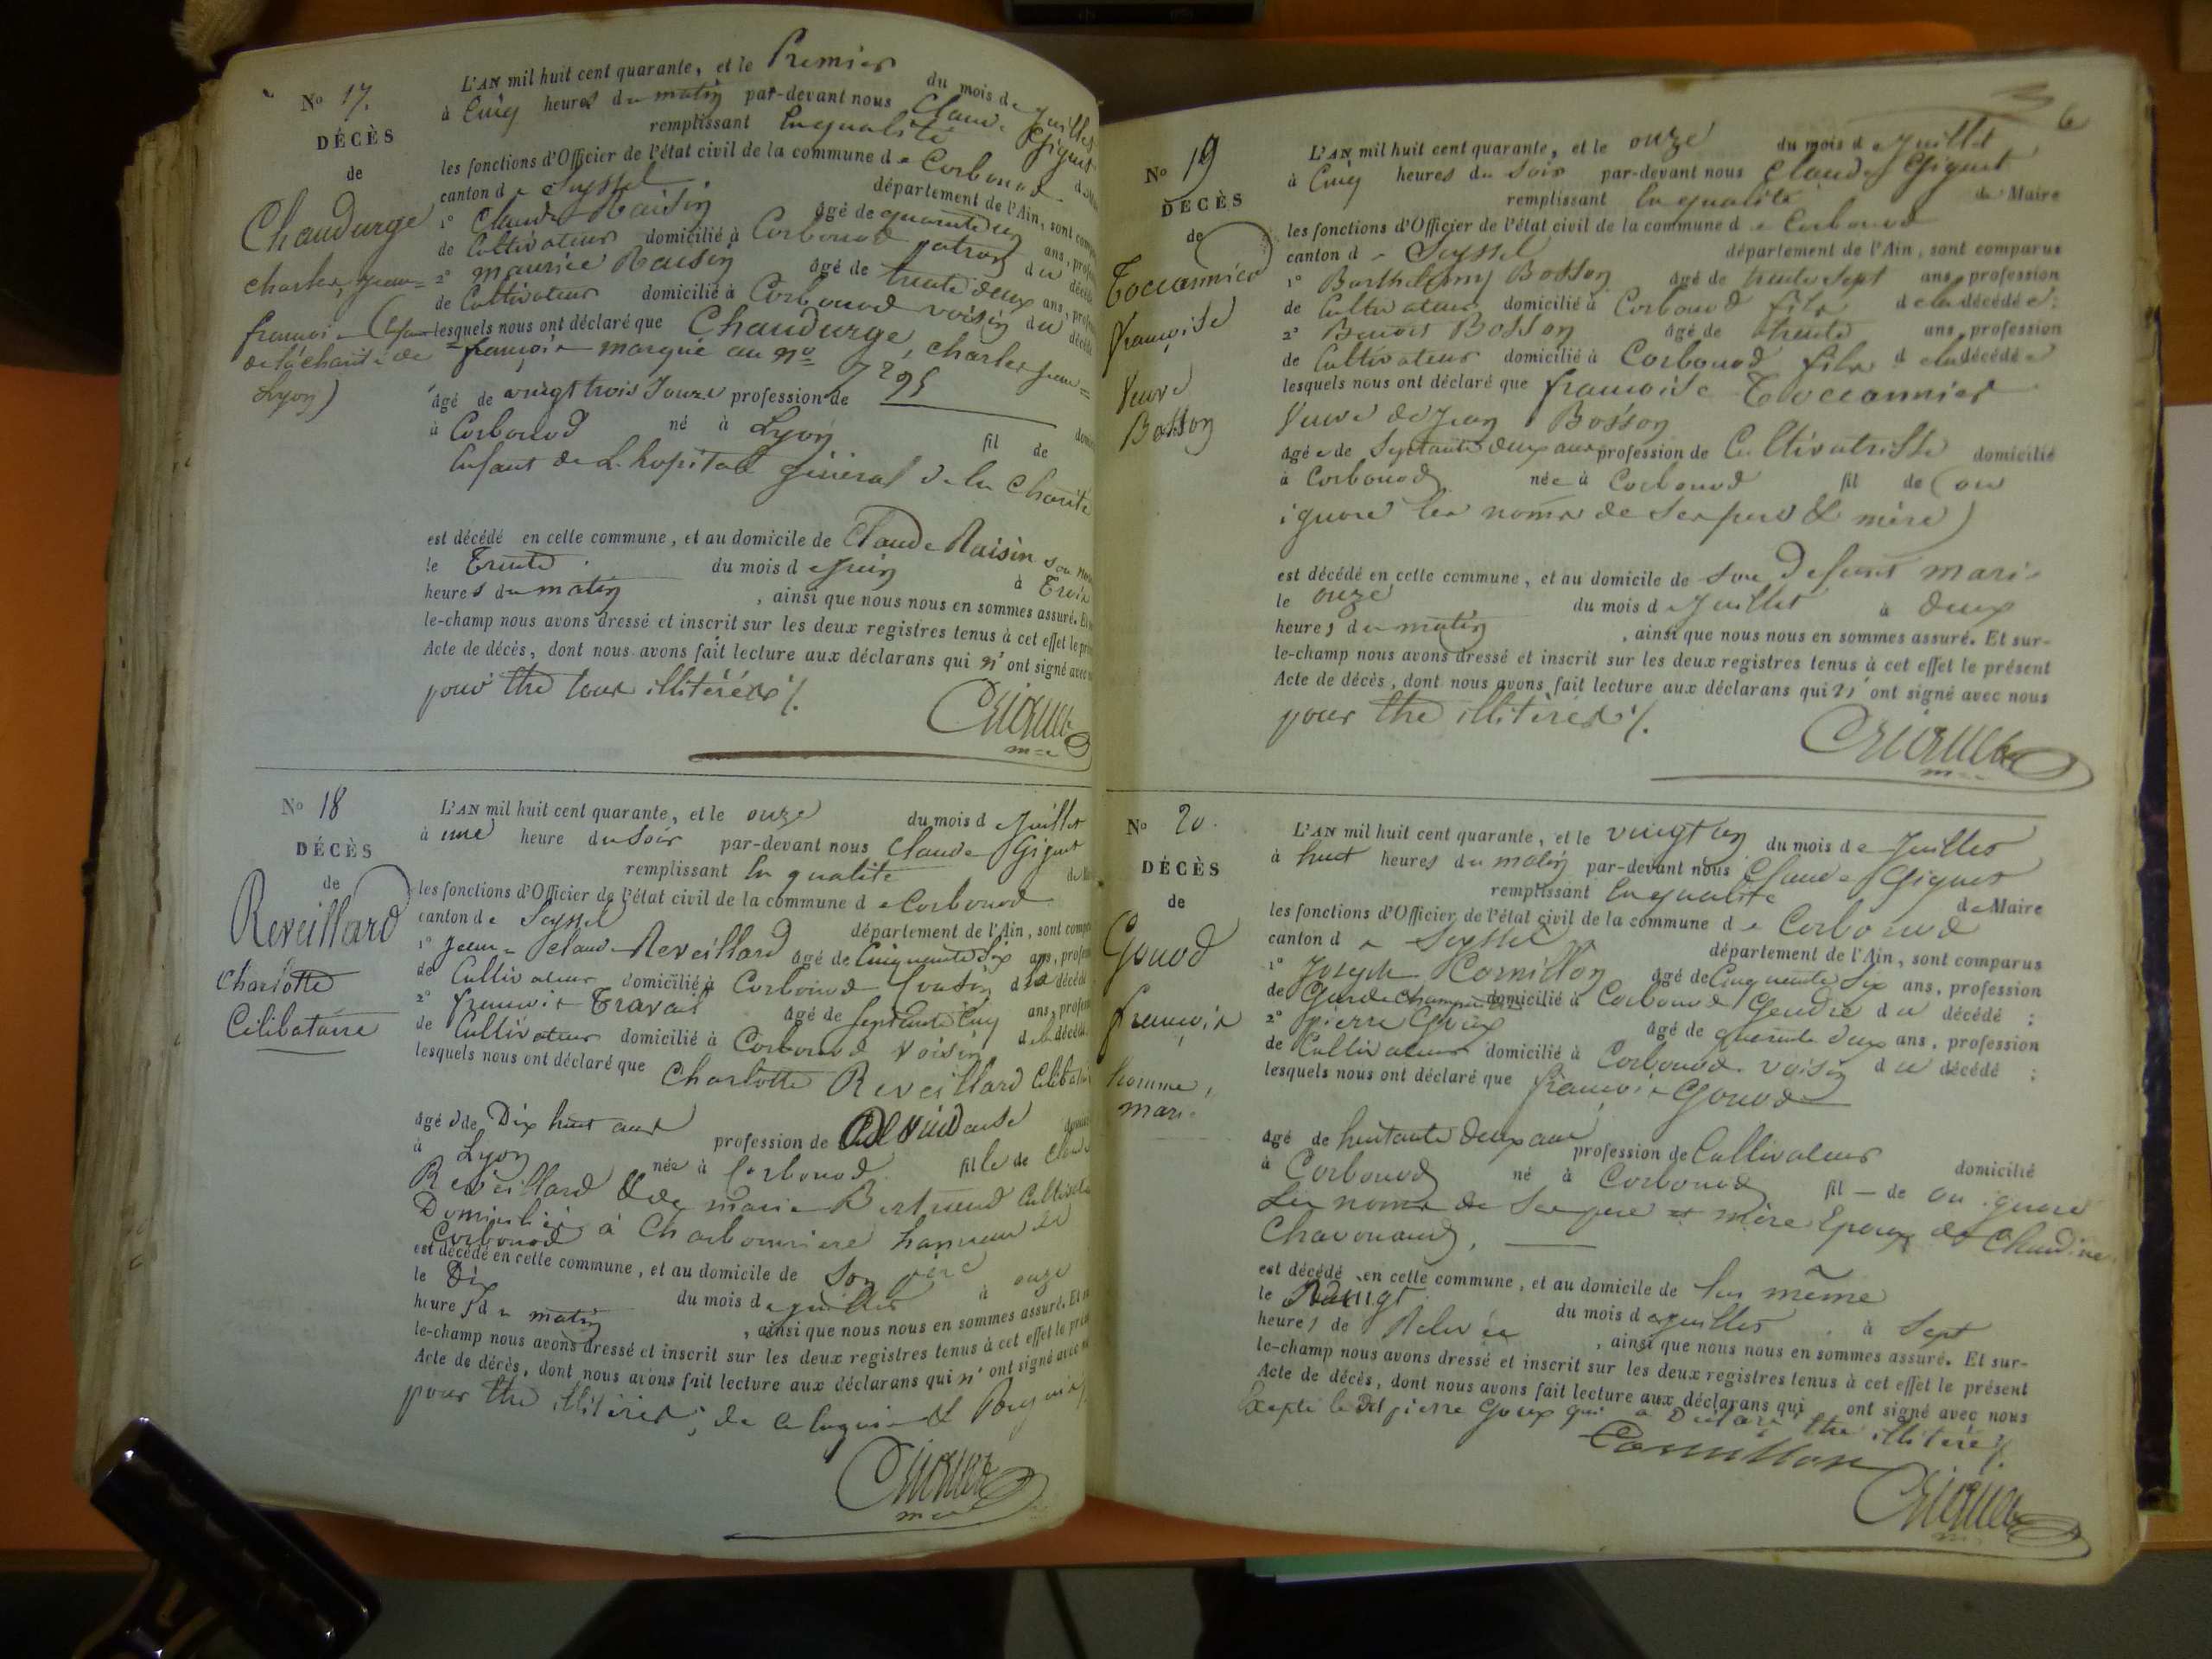 No 17.
DÉCÈS
de
Chaudurge
charles, jean=
françois (enfant
de la charité de
Lyon)
L'AN mil huit cent quarante, et le Premier du mois de Juillet
à Cinq heures du matin par-devant nous Claude Giguet
remplissant la qualité
les fonctions d'Officier de l'état civil de la commune de Corbonod
canton de Seyssel département de l'Ain, sont comp
1° Claude Raisin âgé de quarante un ans, profe
de Cultivateur domicilié à Corbonod patron du décédé
2° maurice Raisin âgé de trente deux ans, profe
de Cultivateur domicilié à Corbonod voisin du décédé
lesquels nous ont déclaré que Chaudurge, charles jean=
=françois marqué au no 7295
âgé de vingt trois Jours profession de
à Corbonod né à Lyon fil de
Enfant de L'hopital général de la Charité
est décédé en cette commune, et au domicile de Claude Raisin son
le Trente du mois de Juin à Trois
heures du matin, ainsi que nous nous en sommes assuré. Et
le-champ nous avons dressé et inscrit sur les deux registres tenus à cet effet le pré
Acte de décès, dont nous avons fait lecture aux déclarans qui n'ont signé avec
pour être tous illitérés /.
CGiguet
No 18
DÉCÈS
de
Reveillard
Charlotte
Célibataire
L'AN mil huit cent quarante, et le onze du mois de Juillet
à une heure du Soir par-devant nous Claude Giguet
remplissant la qualité
les fonctions d'Officier de l'état civil de la commune de Corbonod
canton de Seyssel département de l'Ain, sont comp
1° Jean=Claude Reveillard âgé de Cinquante Six ans, profes
de Cultivateur domicilié à Corbonod Cousin de la décédé
2° françois Travail âgé de Septante Cinq ans, profes
de Cultivateur domicilié à Corbonod Voisin de la décédé
lesquels nous ont déclaré que Charlotte Reveillard
âgé de Dix huit ans profession de Devideuse
à Lyon née à Corbonod fille de
Reveillard & de marie Bertrand
Domiciliés à Charbonniere hameau de
Corbonod
est décédé en cette commune, et au domicile de Son père
le Dix du mois de Juillet à onze
heures du matin, ainsi que nous nous en sommes assuré. Et
le-champ nous avons dressé et inscrit sur les deux registres tenus à cet effet le pré
Acte de décès, dont nous avons fait lecture aux déclarans qui n'ont signé avec
pour être illitérés, de ce &
CGiguet
6
No 19
DÉCÈS
de
Toccannier
françoise
Veuve
Bosson
L'AN mil huit cent quarante, et le onze du mois de Juillet
à Cinq heures du Soir par-devant nous Claude Giguet
remplissant la qualité de Maire
les fonctions d'Officier de l'état civil de la commune de Corbonod
canton de Seyssel département de l'Ain, sont comparus
1° Barthelemy Bosson âgé de trente Sept ans, profession
de Cultivateur domicilié à Corbonod fils de la décédée;
2° Benoit Bosson âgé de trente ans, profession
de Cultivateur domicilié à Corbonod fils de la décédée
lesquels nous ont déclaré que françoise Toccannier
Veuve de Jean Bosson
âgée de Septante deux ans profession de Cultivatrisse domicilié
à Corbonod née à Corbonod fil de (on
ignore les noms de Ses père & mère)
est décédé en cette commune, et au domicile de Son defunt mari
le onze du mois de Juillet à deux
heures du matin, ainsi que nous nous en sommes assuré. Et sur-
le-champ nous avons dressé et inscrit sur les deux registres tenus à cet effet le présent
Acte de décès, dont nous avons fait lecture aux déclarans qui n'ont signé avec nous
pour être illitérés /.
CGiguet
No 20.
DÉCÈS
de
Gonod
françois
homme
marié
L'AN mil huit cent quarante, et le vingt un du mois de Juillet
à huit heures du matin par-devant nous Claude Giguet
remplissant la qualité de Maire
les fonctions d'Officier de l'état civil de la commune de Corbonod
canton de Seyssel département de l'Ain, sont comparus
1° Joseph Cornillon âgé de Cinquante Six ans, profession
de Garde champêtre domicilié à Corbonod Gendre du décédé;
2° pierre Goux âgé de quarante deux ans, profession
de Cultivateur domicilié à Corbonod voisin du décédé;
lesquels nous ont déclaré que françois Gonod
âgé de huitante deux ans profession de Cultivateur domicilié
à Corbonod né à Corbonod fil — de on ignore
les noms de Ses père et mère Epoux de Claudine
Chavonand,
est décédé en cette commune, et au domicile de lui même
le Vingt du mois de Juillet à Sept
heures de Relevée, ainsi que nous nous en sommes assuré. Et sur-
le-champ nous avons dressé et inscrit sur les deux registres tenus à cet effet le présent
Acte de décès, dont nous avons fait lecture aux déclarans qui ont signé avec nous
Excepté le dit pierre Goux qui a Déclaré être illitéré /.
Cornillon
CGiguet